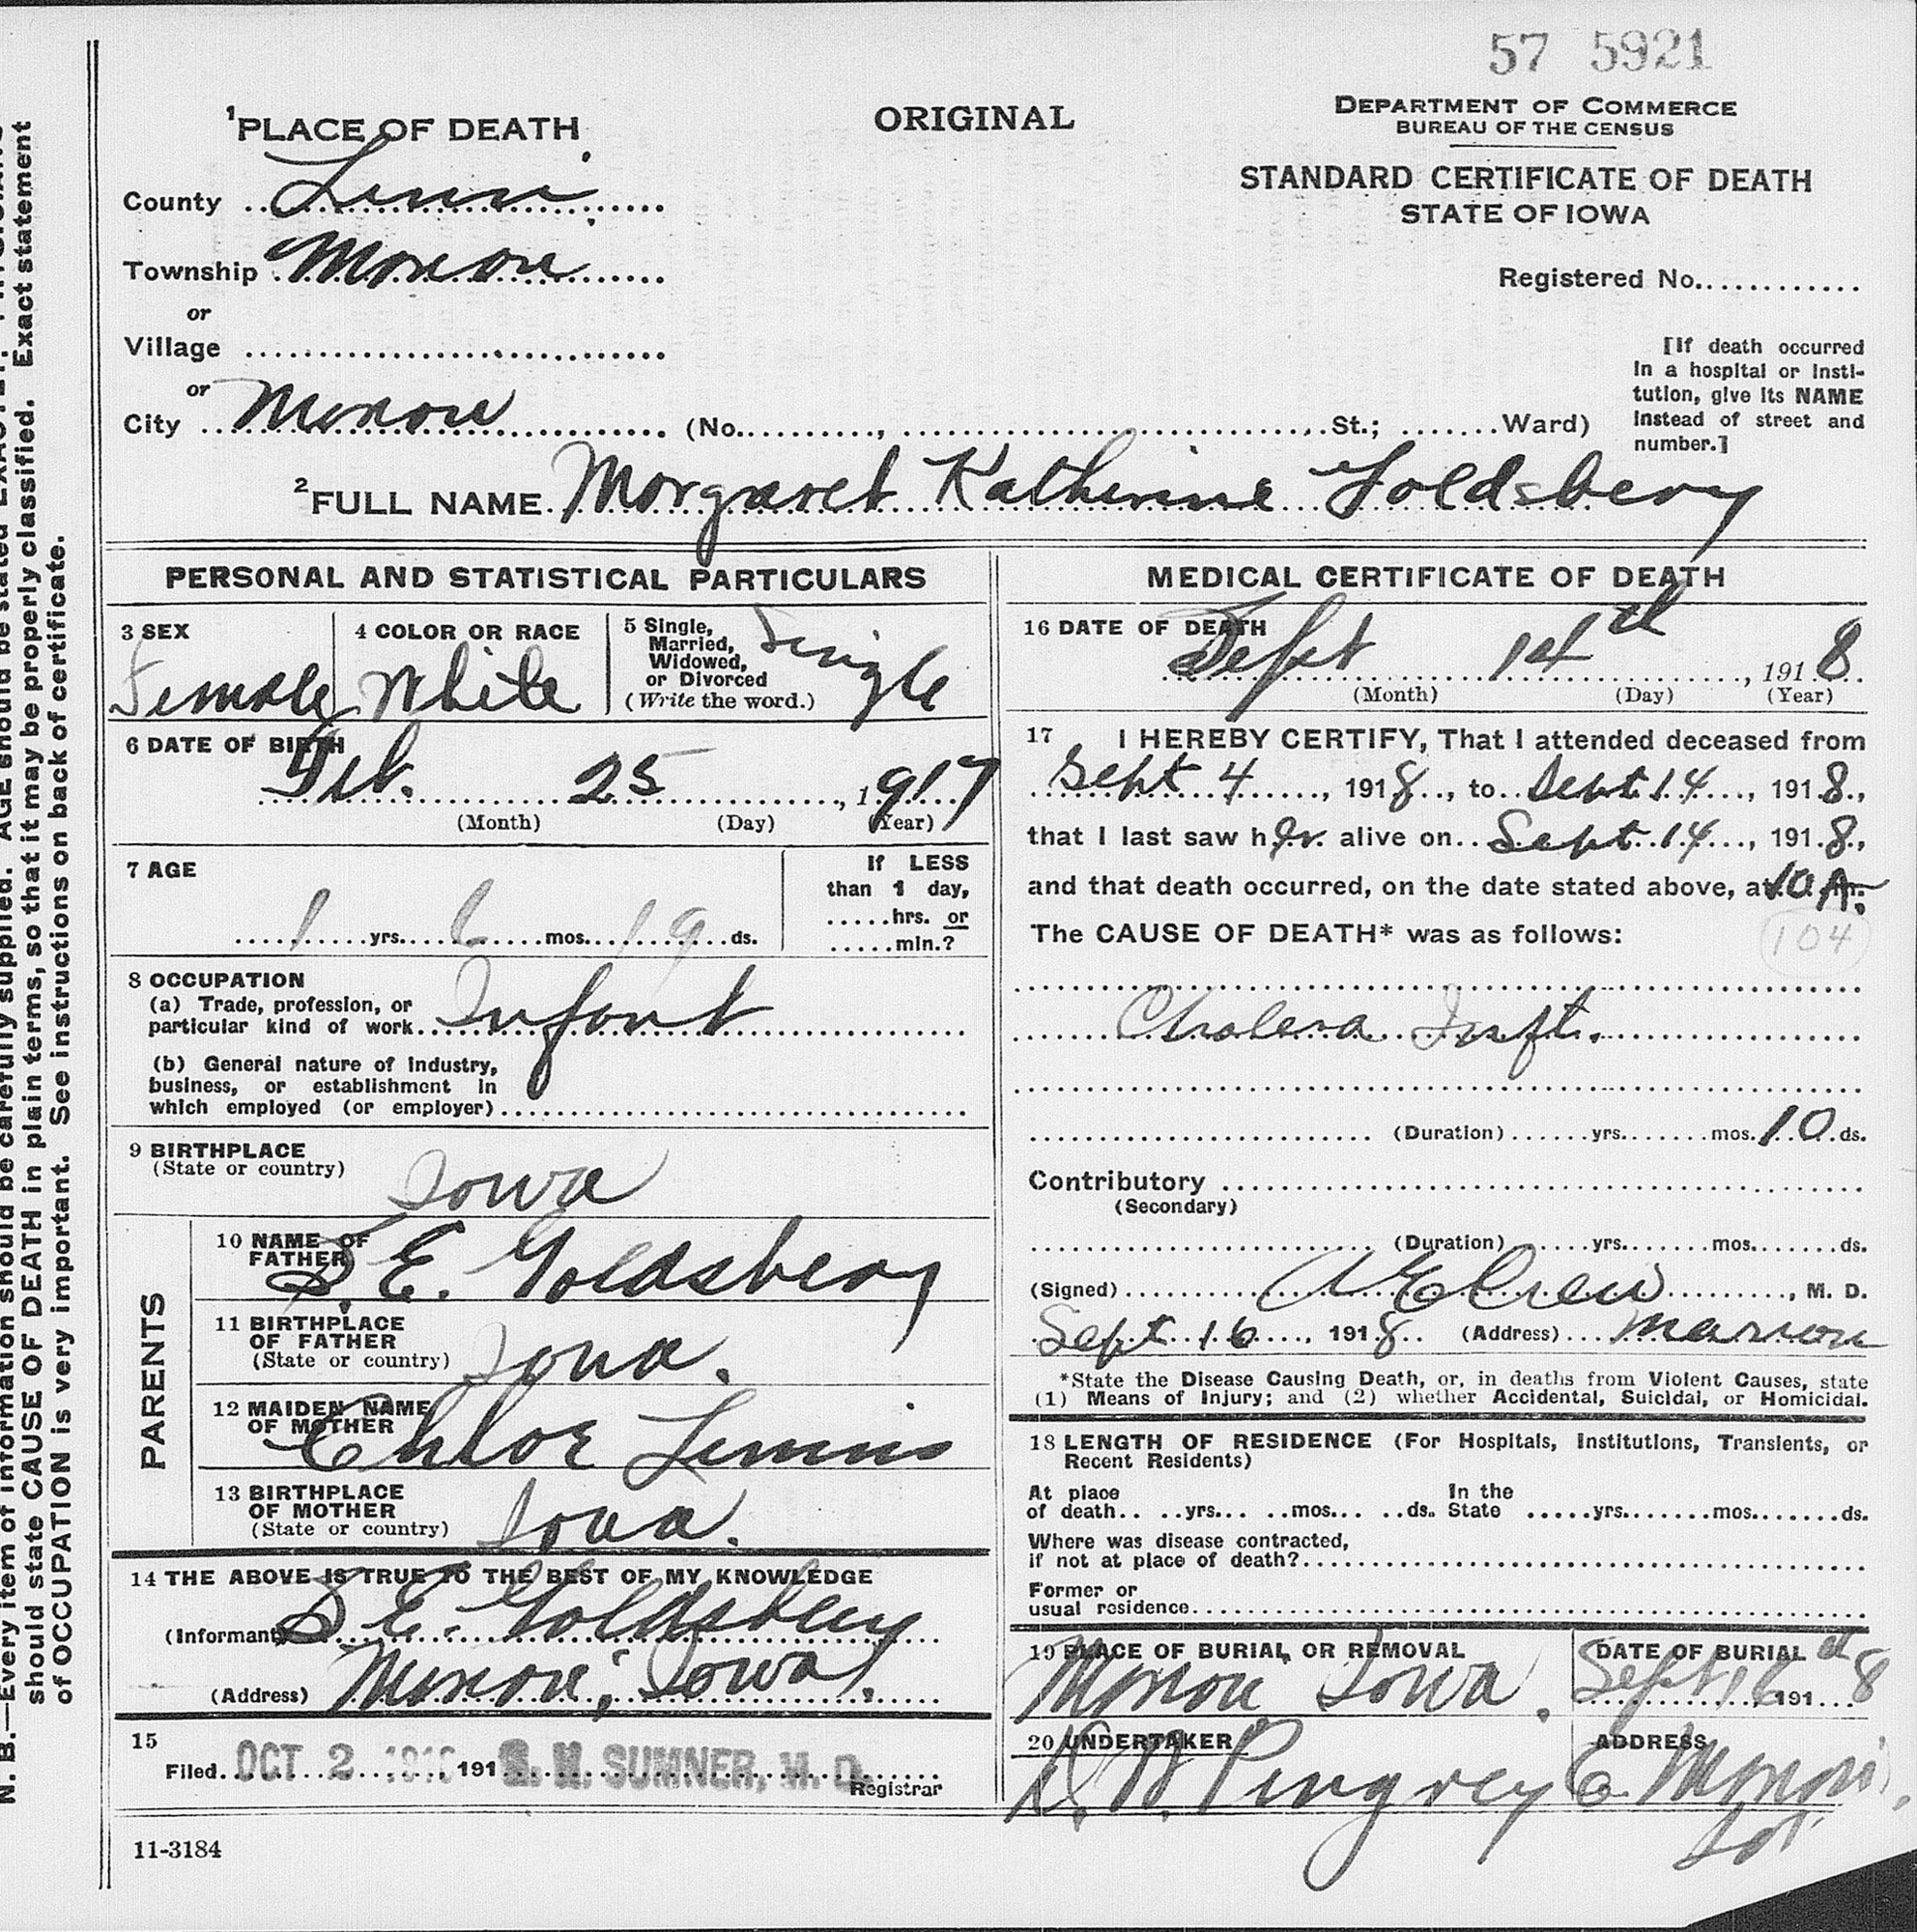 57 5921
DEPARTMENT OF COMMERCE
BUREAU OF THE CENSUS
ORIGINAL
STANDARD CERTIFICATE OF DEATH
STATE OF IOWA
Registered No.
1 PLACE OF DEATH
County Linn
Township
or
Village
or
City
(No. , St.; Ward)
[If death occurred
in a hospital or insti-
tution, give its NAME
instead of street and
number.]
2 FULL NAME Margaret Katherine Goldsbery
PERSONAL AND STATISTICAL PARTICULARS
3 SEX
Female
4 COLOR OR RACE
White
5 Single,
Married,
Widowed,
or Divorced
(Write the word.)
Single
6 DATE OF BIRTH
Feb. 25, 1917
(Month) (Day) (Year)
7 AGE
1 yrs. 6 mos. 19 ds.
If LESS
than 1 day,
hrs. or
min.?
8 OCCUPATION
(a) Trade, profession, or
particular kind of work Infant
(b) General nature of industry,
business, or establishment in
which employed (or employer)
9 BIRTHPLACE
(State or country)
Iowa
PARENTS
10 NAME OF
FATHER
S. E. Goldsbery
11 BIRTHPLACE
OF FATHER
(State or country) Iowa.
12 MAIDEN NAME
OF MOTHER
Chloe
13 BIRTHPLACE
OF MOTHER
(State or country) Iowa.
14 THE ABOVE IS TRUE TO THE BEST OF MY KNOWLEDGE
(Informant) S E. Goldsbery
(Address) Iowa.
15
Filed OCT 2 , 191 SUMNER, M. D.
Registrar
11-3184
MEDICAL CERTIFICATE OF DEATH
16 DATE OF DEATH
Sept 14th, 1918
(Month) (Day) (Year)
17 I HEREBY CERTIFY, That I attended deceased from
Sept 4, 1918, to Sept 14, 1918,
that I last saw her alive on Sept 14, 1918,
and that death occurred, on the date stated above, at 10 A. m.
The CAUSE OF DEATH* was as follows:
104
Cholera Inft.
(Duration) yrs. mos. 10 ds.
Contributory
(Secondary)
(Duration) yrs. mos. ds.
(Signed) A E Crew, M. D.
Sept 16, 1918 (Address) Marion
*State the Disease Causing Death, or, in deaths from Violent Causes, state
(1) Means of Injury; and (2) whether Accidental, Suicidal, or Homicidal.
18 LENGTH OF RESIDENCE (For Hospitals, Institutions, Transients, or
Recent Residents)
At place
of death yrs. mos. ds.
In the
State yrs. mos. ds.
Where was disease contracted,
if not at place of death?
Former or
usual residence
19 PLACE OF BURIAL OR REMOVAL
Iowa.
DATE OF BURIAL
Sept 16, 1918
20 UNDERTAKER
Pingrey
ADDRESS
N. B.—Every item of information should be carefully supplied. AGE should be stated EXACTLY.
should state CAUSE OF DEATH in plain terms, so that it may be properly classified. Exact statement
of OCCUPATION is very important. See instructions on back of certificate.